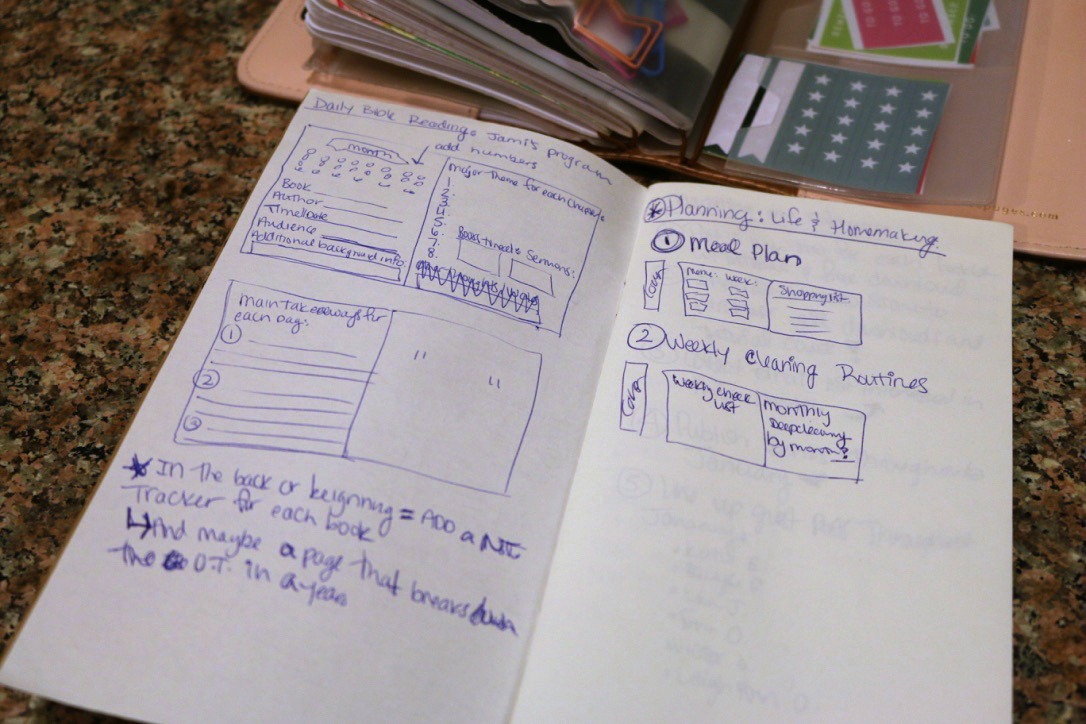 Daily Bible Reading: Jami's program
add numbers
month
Book
Author
Time/Date
Audience
Additional background info:
major theme for each chapter
1.
2.
3.
4.
5.
6.
7.
8.
Books to read: Sermons:
main takeaways for
each Day:
1
2
3
"
"
In the back or beignning = ADD a NT
Tracker for each book
And maybe a page that breaks down
the O.T. in a year
Planning: Life & Homemaking
1 Meal Plan
Cover
menu: week:
Shopping list
2 Weekly Cleaning Routines
Cover
Weekly check
list
monthly
Deepcleaning
by month?